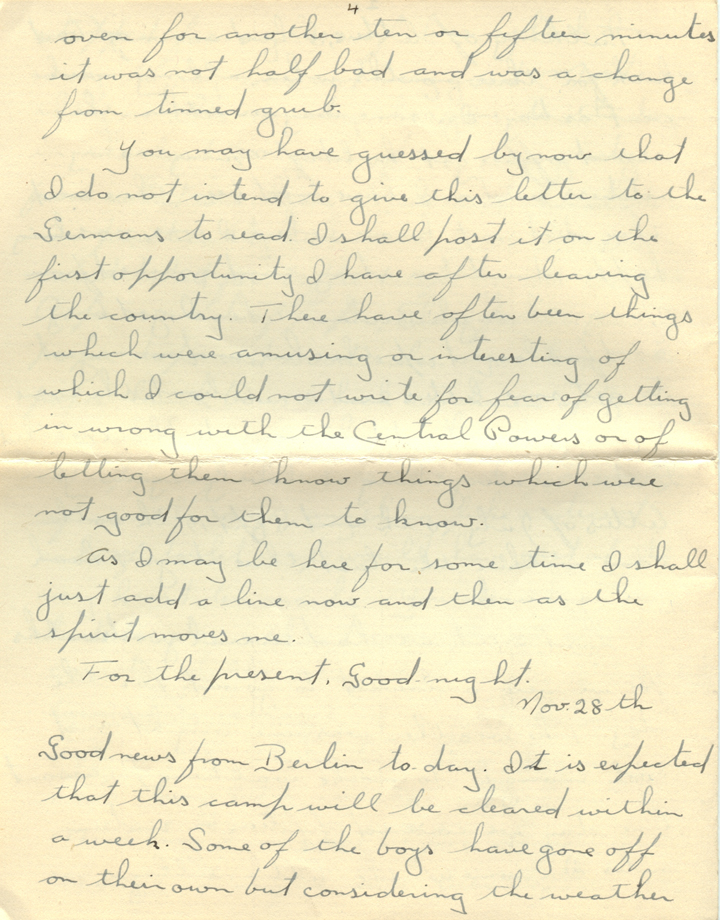 4
oven for another ten or fifteen minutes
it was not half bad and was a change
from tinned grub.
You may have guessed by now that
I do not intend to give this letter to the
Germans to read. I shall post it on the
first opportunity I have after leaving
the country. There have often been things
which were amusing or interesting of
which I could not write for fear of getting
in wrong with the Central Powers or of
letting them know things which were
not good for them to know.
As I may be here for some time I shall
just add a line now and then as the
spirit moves me.
For the present, Good-night.
Nov. 28th
Good news from Berlin to-day. It is expected
that this camp will be cleared within
a week. Some of the boys have gone off
on their own but considering the weather